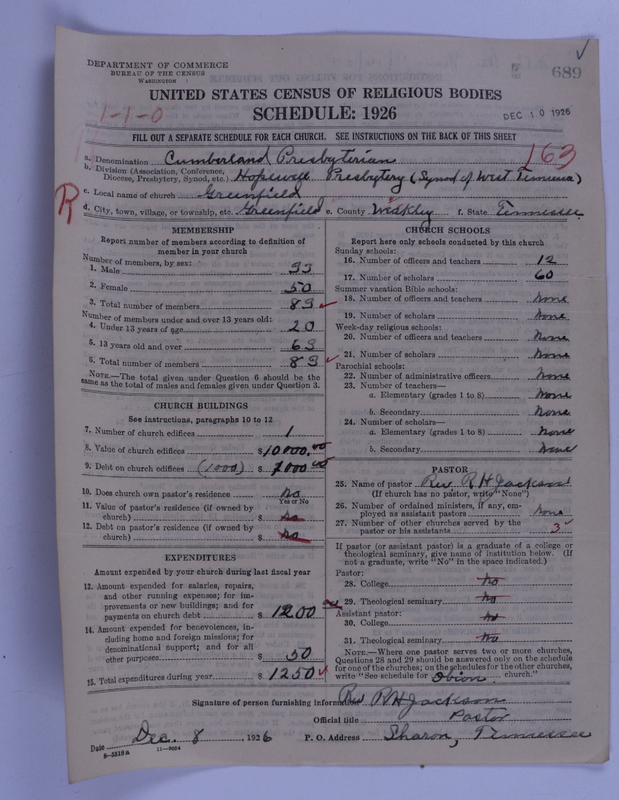 DEPARTMENT OF COMMERCE
BUREAU OF THE CENSUS
WASHINGTON
689
UNITED STATES CENSUS OF RELIGIOUS BODIES
1-1-0
SCHEDULE: 1926
DEC 10 1926
FILL OUT A SEPARATE SCHEDULE FOR EACH CHURCH. SEE INSTRUCTIONS ON THE BACK OF THIS SHEET
163
a. Denomination Cumberland Presbyterian
b. Division (Association, Conference, Diocese, Presbytery, Synod, etc.) Hopewell Presbytery (Synod of West Tennessee)
R
c. Local name of church Greenfield
d. City, town, village, or township, etc. Greenfield e. County Weakley f. State Tennessee
MEMBERSHIP
Report number of members according to definition of
member in your church
Number of members, by sex:
1. Male 33
2. Female 50
3. Total number of members 83
Number of members under and over 13 years old:
4. Under 13 years of age 20
5. 13 years old and over 63
6. Total number of members 83
NOTE.—The total given under Question 6 should be the
same as the total of males and females given under Question 3.
CHURCH BUILDINGS
See instructions, paragraphs 10 to 12
7. Number of church edifices 1
8. Value of church edifices $10000.00
9. Debt on church edifices (1000) $ 1000 00
10. Does church own pastor's residence No
Yes or No
11. Value of pastor's residence (if owned by
church) $ No
12. Debt on pastor's residence (if owned by
church) $ No
EXPENDITURES
Amount expended by your church during last fiscal year
13. Amount expended for salaries, repairs,
and other running expenses; for im-
provements or new buildings; and for
payments on church debt $ 1200
14. Amount expended for benevolences, in-
cluding home and foreign missions; for
denominational support; and for all
other purposes $ 50
15. Total expenditures during year $ 1250
CHURCH SCHOOLS
Report here only schools conducted by this church
Sunday schools:
16. Number of officers and teachers 12
17. Number of scholars 60
Summer vacation Bible schools:
18. Number of officers and teachers None
19. Number of scholars None
Week-day religious schools:
20. Number of officers and teachers None
21. Number of scholars None
Parochial schools:
22. Number of administrative officers None
23. Number of teachers—
a. Elementary (grades 1 to 8) None
b. Secondary None
24. Number of scholars—
a. Elementary (grades 1 to 8) None
b. Secondary None
PASTOR
25. Name of pastor Rev R H Jackson
(If church has no pastor, write "None")
26. Number of ordained ministers, if any, em-
ployed as assistant pastors None
27. Number of other churches served by the
pastor or his assistants 3
If pastor (or assistant pastor) is a graduate of a college or
theological seminary, give name of institution below. (If
not a graduate, write "No" in the space indicated.)
Pastor:
28. College No
29. Theological seminary No
Assistant pastor:
30. College No
31. Theological seminary No
NOTE.—Where one pastor serves two or more churches,
Questions 28 and 29 should be answered only on the schedule
for one of the churches; on the schedules for the other churches,
write "See schedule for Obion church."
Signature of person furnishing information Rev R H Jackson
Official title Pastor
Date Dec. 8, 1926 P. O. Address Sharon, Tennessee
8-5318a 11-9004